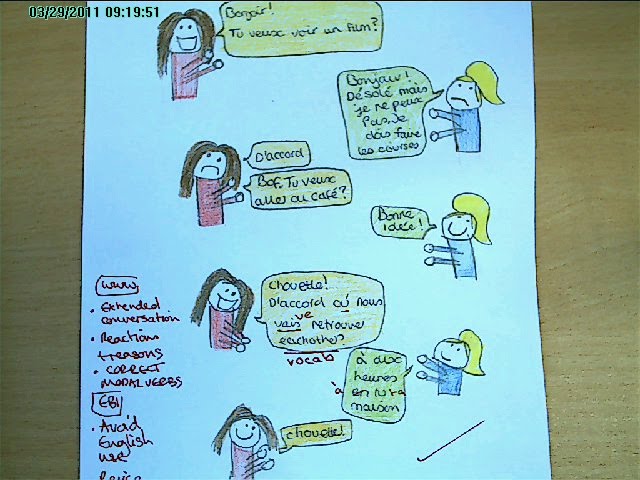 03/29/2011 09:19:51
Bonjoir!
Tu veux voir un film?
Bonjour!
Désolé mais
je ne peux
Pas. Je
dois faire
les courses
D'accord
Bof, Tu veux
aller au café?
Bonne
idée!
Chouette!
D'accord où nous
ve
vais retrouver
eachother?
vocab
à
à aux
heures
en
maison
chouette!
WWW
• Extended
conversation
• Reactions
+ reasons
• CORRECT
MODAL VERBS
EBI
• Avoid
English
use